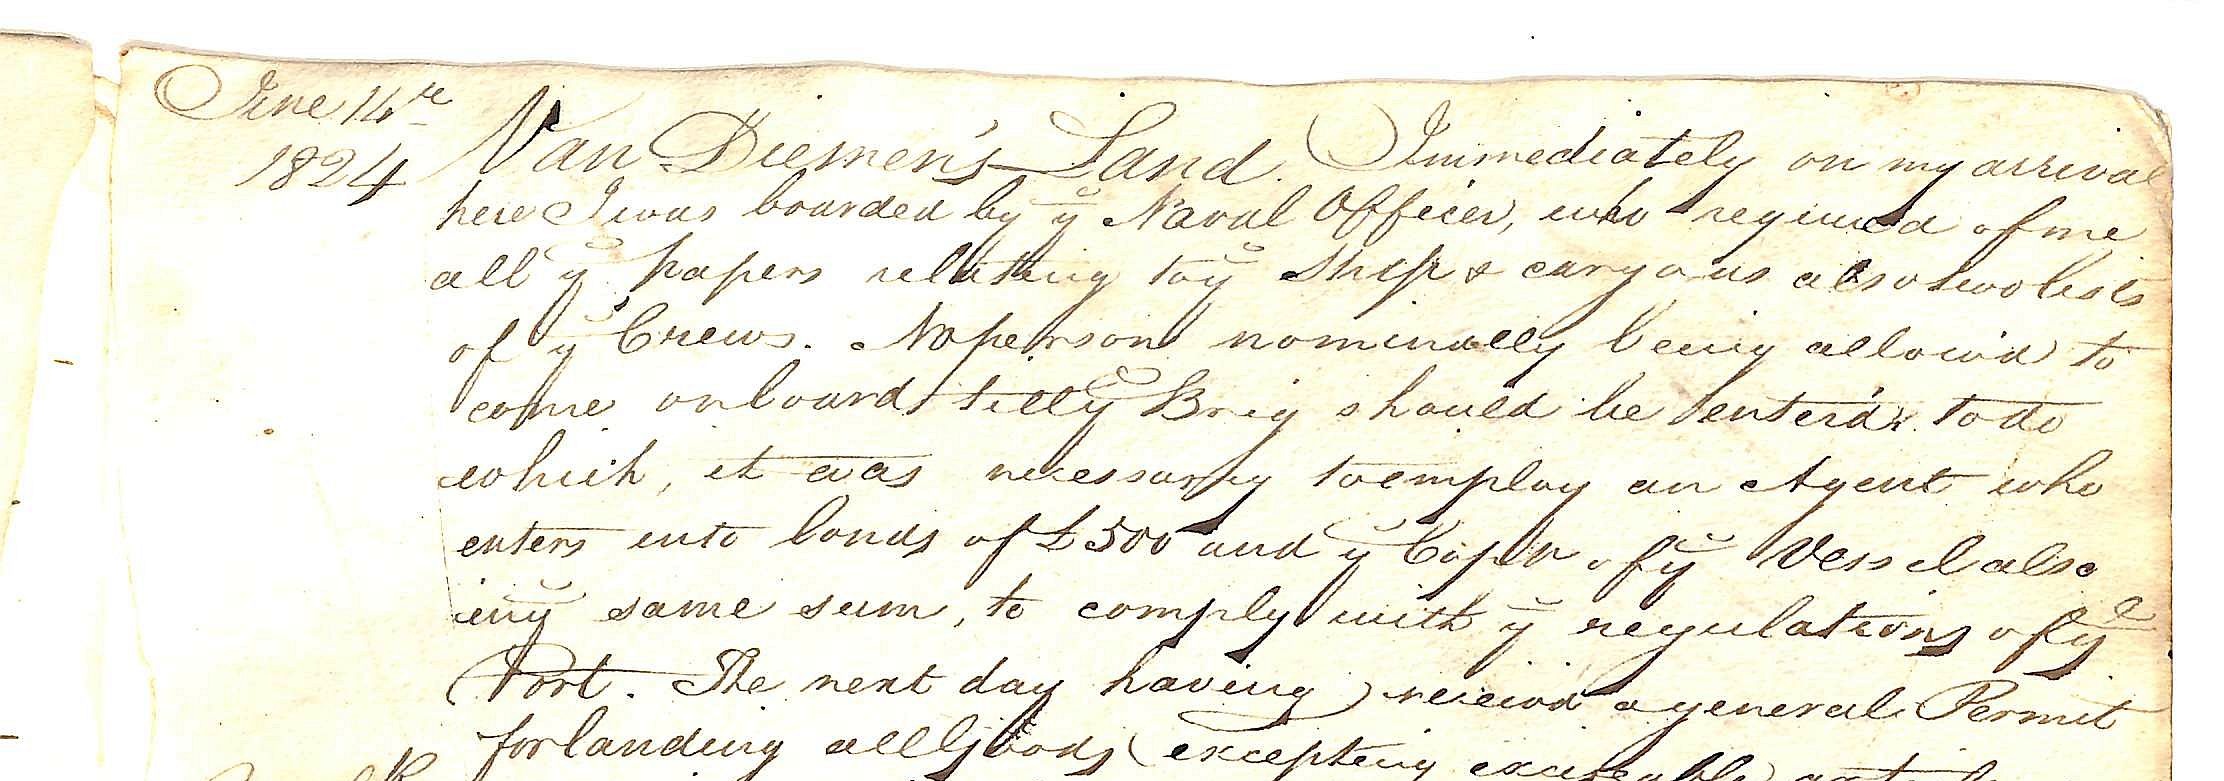 June 14th
1824 Van Diemen's Land. Immediately on my arrival
here I was boarded by ye Naval Officer, who required of me
all ye papers relating to ye Ship & cargo as also two lists
of ye Crews. No person nominally being allow'd to
come on board till ye Brig should be enter'd, to do
which, it was necessary to employ an Agent who
enters into bonds of £500 and ye Captn of ye Vessel also
in ye same sum, to comply with ye regulations of ye
Port. The next day having receiv'd a general Permit
for landing all Goods (excepting exciseable